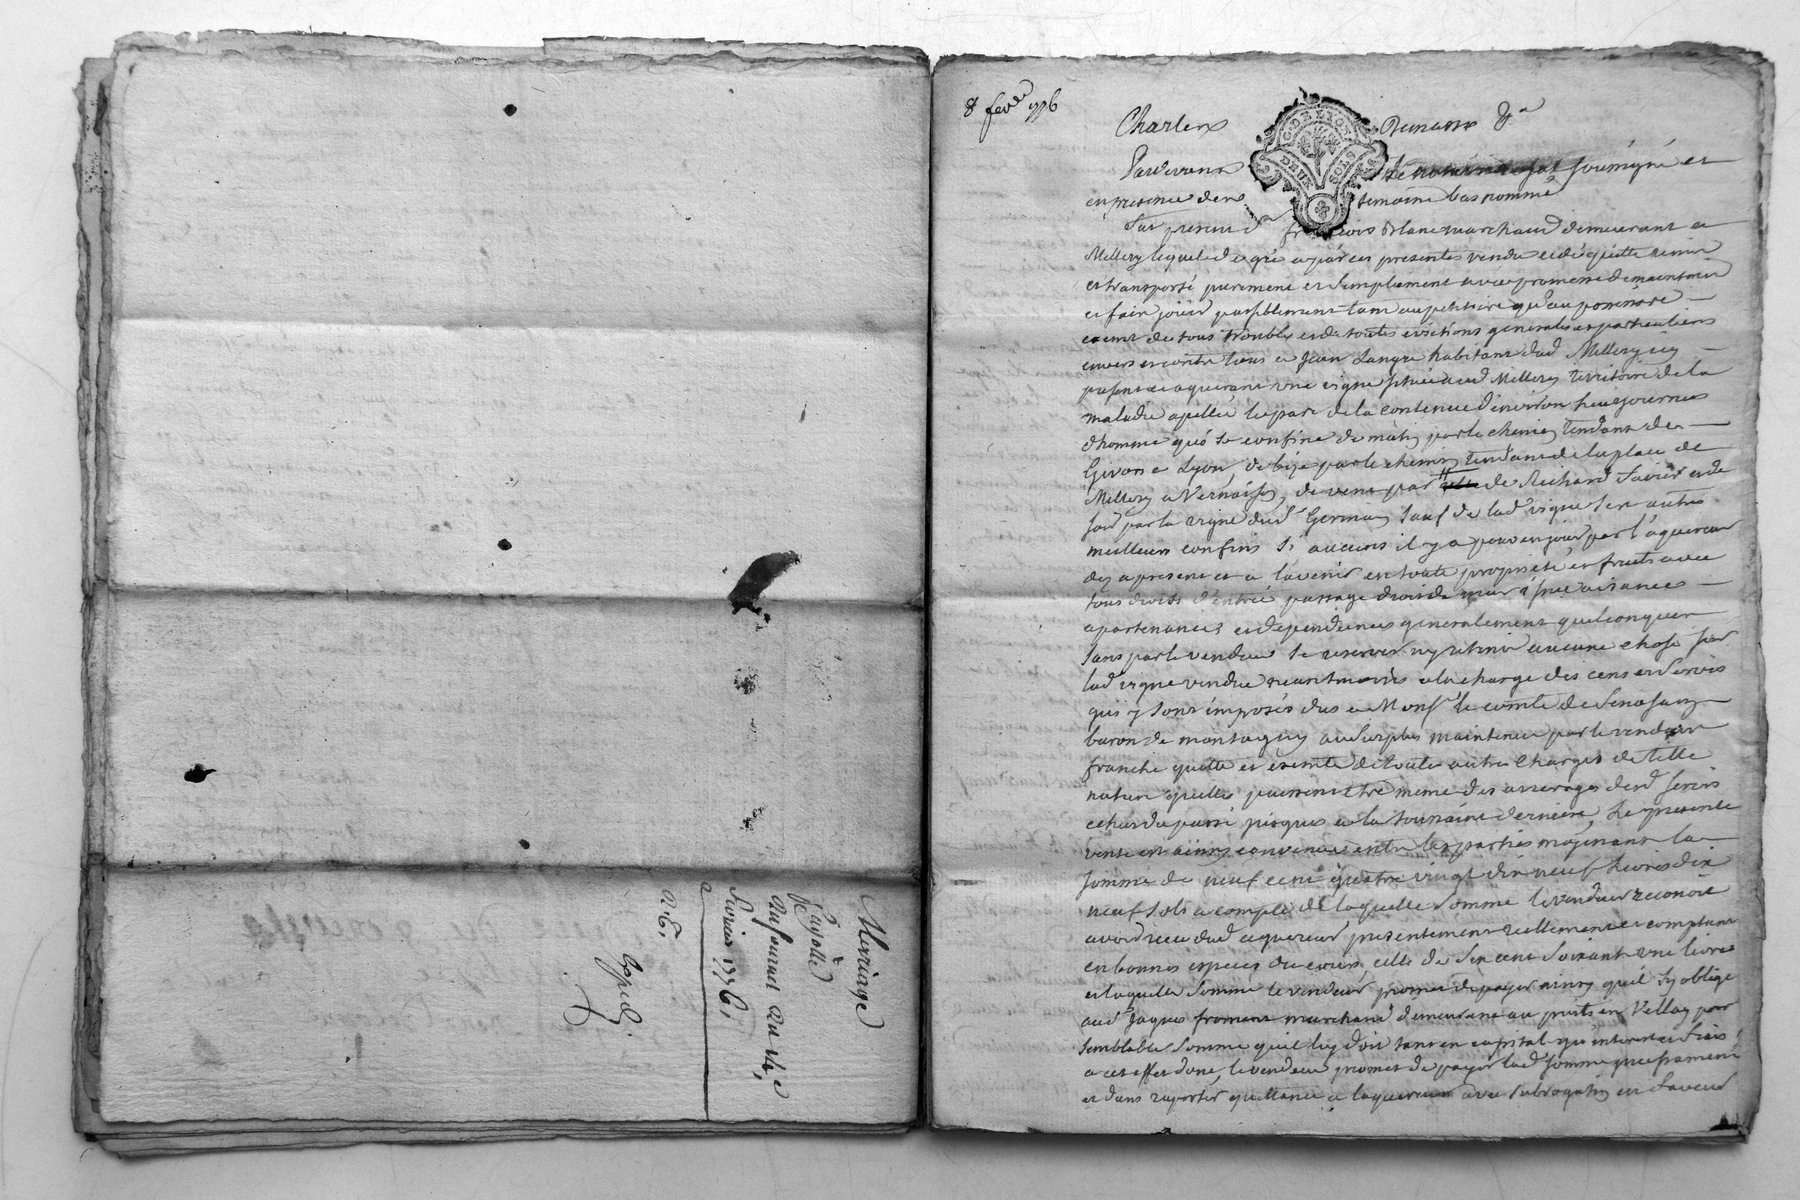 Mariage
Layolle
Du
1776,
Exped.
8 fev.er 1776
Charles
G. DE LYON
DEUX SOLS
Pardevant Le soussigné et
en presence des temoins bas nommés
fut present françois Blanc marchand demeurant a
Millery lequel de gré a par ces presentes vendu cedé quitté remis
et transporté purement et simplement avec promesse de maintenir
et faire jouir paisiblement tant au petitoire qu'au possessoire
exemt de tous troubles et de toutes evictions generales et particulieres
envers et contre tous a Jean Langre habitant dud Millery icy
present et aquerant une vigne située aud Millery territoire de la
maladie apellée le parc de la contenue d'environ journees
d'homme qui se confine de matin par le chemin tendant de
Givors a Lyon, de bize par le chemin tendant de la place de
Millery a Vernaison, de vent par de Richard et de
soir par la vigne du sr Germain sauf de lad vigne ses autres
meilleurs confins si aucuns il y a pour en jouir par l'aquereur
des a present et a l'avenir en toute proprieté et fruits avec
tous droits d'entrée passage droits de aisances
apartenances et dependences generalement quelconques
sans par le vendeur se reserver ny retenir aucune chose sur
lad vigne vendue neantmoins a la charge des cens et servis
qui y sont imposés dus a Monsr le comte de Senosan
baron de montagny au surplus maintenue par le vendeur
franche quitte et exemte de toutes autres charges de telle
nature qu'elles puissent etre meme des arrerages desd servis
echus du passé jusques a la toussaint derniere, La presente
vente est ainsy convenue entre les parties moyenant la
somme de neuf cent quatre vingt dix neuf livres dix
neuf sols a compte de laquelle somme le vendeur reconoit
avoir receu dud aquereur presentement reellement et comptant
en bonnes especes du cours celle de six cent soixante une livres
et laquelle somme le vendeur promet de payer ainsy quil sy oblige
aud Jaques froment marchand demeurant au puits en Vellay pour
semblable somme quil luy doit tant en capital qu'interets et frais
a cet effet donc, le vendeur promet de payer lad somme
et d'en raporter quittance a laquereur avec subrogation en faveur